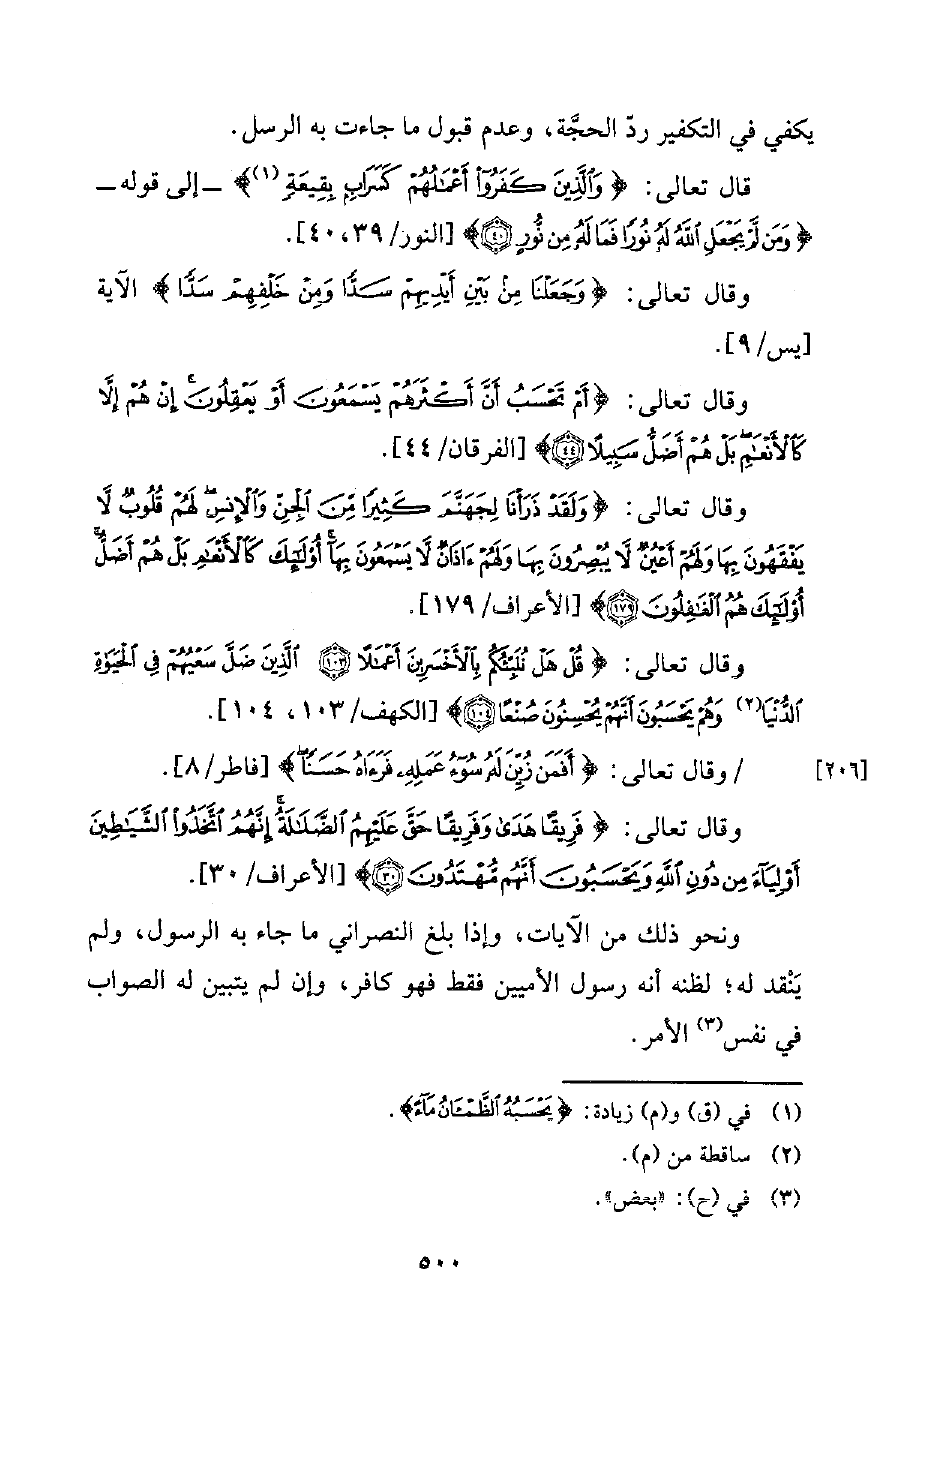 يكفي في التكفير ردّ الحجَّة، وعدم قبول ما جاءت به الرسل.
قال تعالى: ﴿وَٱلَّذِينَ كَفَرُوٓا۟ أَعْمَٰلُهُمْ كَسَرَابٍۭ بِقِيعَةٍ (١)﴾ ـ إلى قوله ـ
﴿وَمَن لَّمْ يَجْعَلِ ٱللَّهُ لَهُۥ نُورًا فَمَا لَهُۥ مِن نُّورٍ ۝٤٠﴾ [النور/ ٣٩، ٤٠].
وقال تعالى: ﴿وَجَعَلْنَا مِنۢ بَيْنِ أَيْدِيهِمْ سَدًّا وَمِنْ خَلْفِهِمْ سَدًّا﴾ الآية
[يس/ ٩].
وقال تعالى: ﴿أَمْ تَحْسَبُ أَنَّ أَكْثَرَهُمْ يَسْمَعُونَ أَوْ يَعْقِلُونَ ۚ إِنْ هُمْ إِلَّا
كَٱلْأَنْعَٰمِ ۖ بَلْ هُمْ أَضَلُّ سَبِيلًا ۝٤٤﴾ [الفرقان/ ٤٤].
وقال تعالى: ﴿وَلَقَدْ ذَرَأْنَا لِجَهَنَّمَ كَثِيرًا مِّنَ ٱلْجِنِّ وَٱلْإِنسِ ۖ لَهُمْ قُلُوبٌ لَّا
يَفْقَهُونَ بِهَا وَلَهُمْ أَعْيُنٌ لَّا يُبْصِرُونَ بِهَا وَلَهُمْ ءَاذَانٌ لَّا يَسْمَعُونَ بِهَآ ۚ أُو۟لَٰٓئِكَ كَٱلْأَنْعَٰمِ بَلْ هُمْ أَضَلُّ ۚ
أُو۟لَٰٓئِكَ هُمُ ٱلْغَٰفِلُونَ ۝١٧٩﴾ [الأعراف/ ١٧٩].
وقال تعالى: ﴿قُلْ هَلْ نُنَبِّئُكُم بِٱلْأَخْسَرِينَ أَعْمَٰلًا ۝١٠٣ ٱلَّذِينَ ضَلَّ سَعْيُهُمْ فِى ٱلْحَيَوٰةِ
ٱلدُّنْيَا (٢) وَهُمْ يَحْسَبُونَ أَنَّهُمْ يُحْسِنُونَ صُنْعًا ۝١٠٤﴾ [الكهف/ ١٠٣، ١٠٤].
[٢٠٦] / وقال تعالى: ﴿أَفَمَن زُيِّنَ لَهُۥ سُوٓءُ عَمَلِهِۦ فَرَءَاهُ حَسَنًا ۖ﴾ [فاطر/ ٨].
وقال تعالى: ﴿فَرِيقًا هَدَىٰ وَفَرِيقًا حَقَّ عَلَيْهِمُ ٱلضَّلَٰلَةُ ۗ إِنَّهُمُ ٱتَّخَذُوا۟ ٱلشَّيَٰطِينَ
أَوْلِيَآءَ مِن دُونِ ٱللَّهِ وَيَحْسَبُونَ أَنَّهُم مُّهْتَدُونَ ۝٣٠﴾ [الأعراف/ ٣٠].
ونحو ذلك من الآيات، وإذا بلغ النصراني ما جاء به الرسول، ولم
يَنْقد له؛ لظنه أنه رسول الأميين فقط فهو كافر، وإن لم يتبين له الصواب
في نفس(٣) الأمر.
(١) في (ق) و(م) زيادة: ﴿يَحْسَبُهُ ٱلظَّمْـَٔانُ مَآءً﴾.
(٢) ساقطة من (م).
(٣) في (ح): «بعض».
٥٠٠